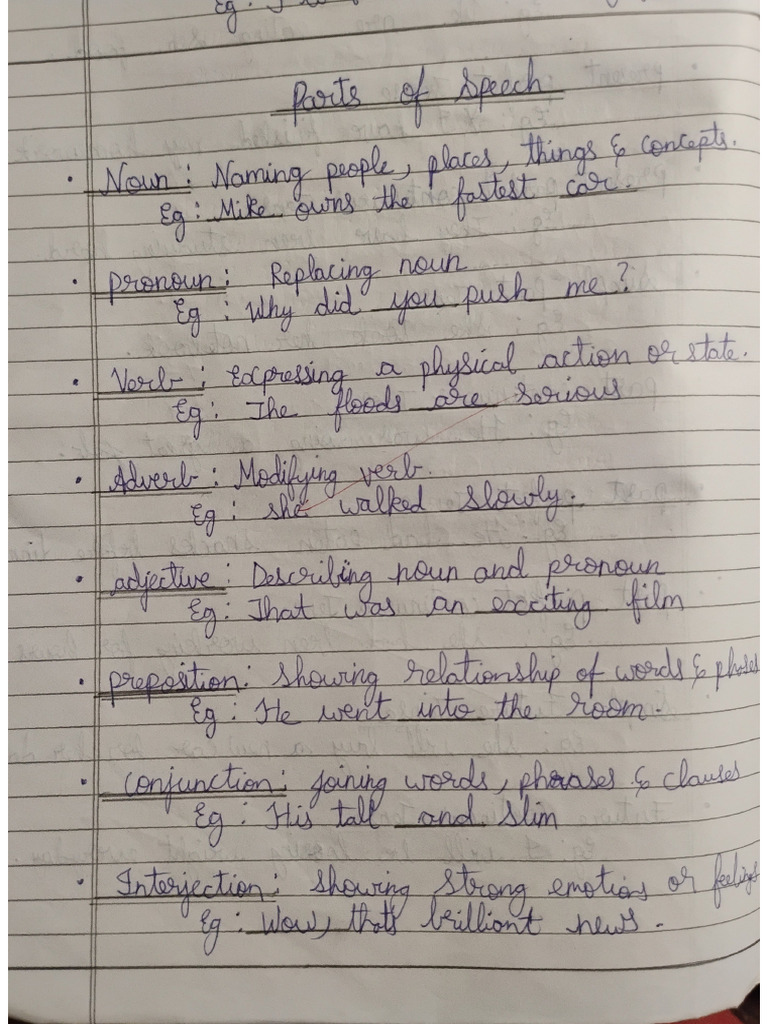 Eg :
Parts of Speech
• Noun : Naming people, places, things & concepts.
Eg : Mike owns the fastest car.
• Pronoun : Replacing noun
Eg : Why did you push me ?
• Verb : Expressing a physical action or state.
Eg : The floods are serious
• Adverb : Modifying verb.
Eg : she walked slowly.
• adjective : Describing noun and pronoun
Eg : That was an exciting film
• preposition : showing relationship of words & phases
Eg : He went into the room.
• conjunction : joining words, phrases & clauses
Eg : His tall and slim
• Interjection : showing strong emotions or feelings
Eg : Wow, thats brilliant news.